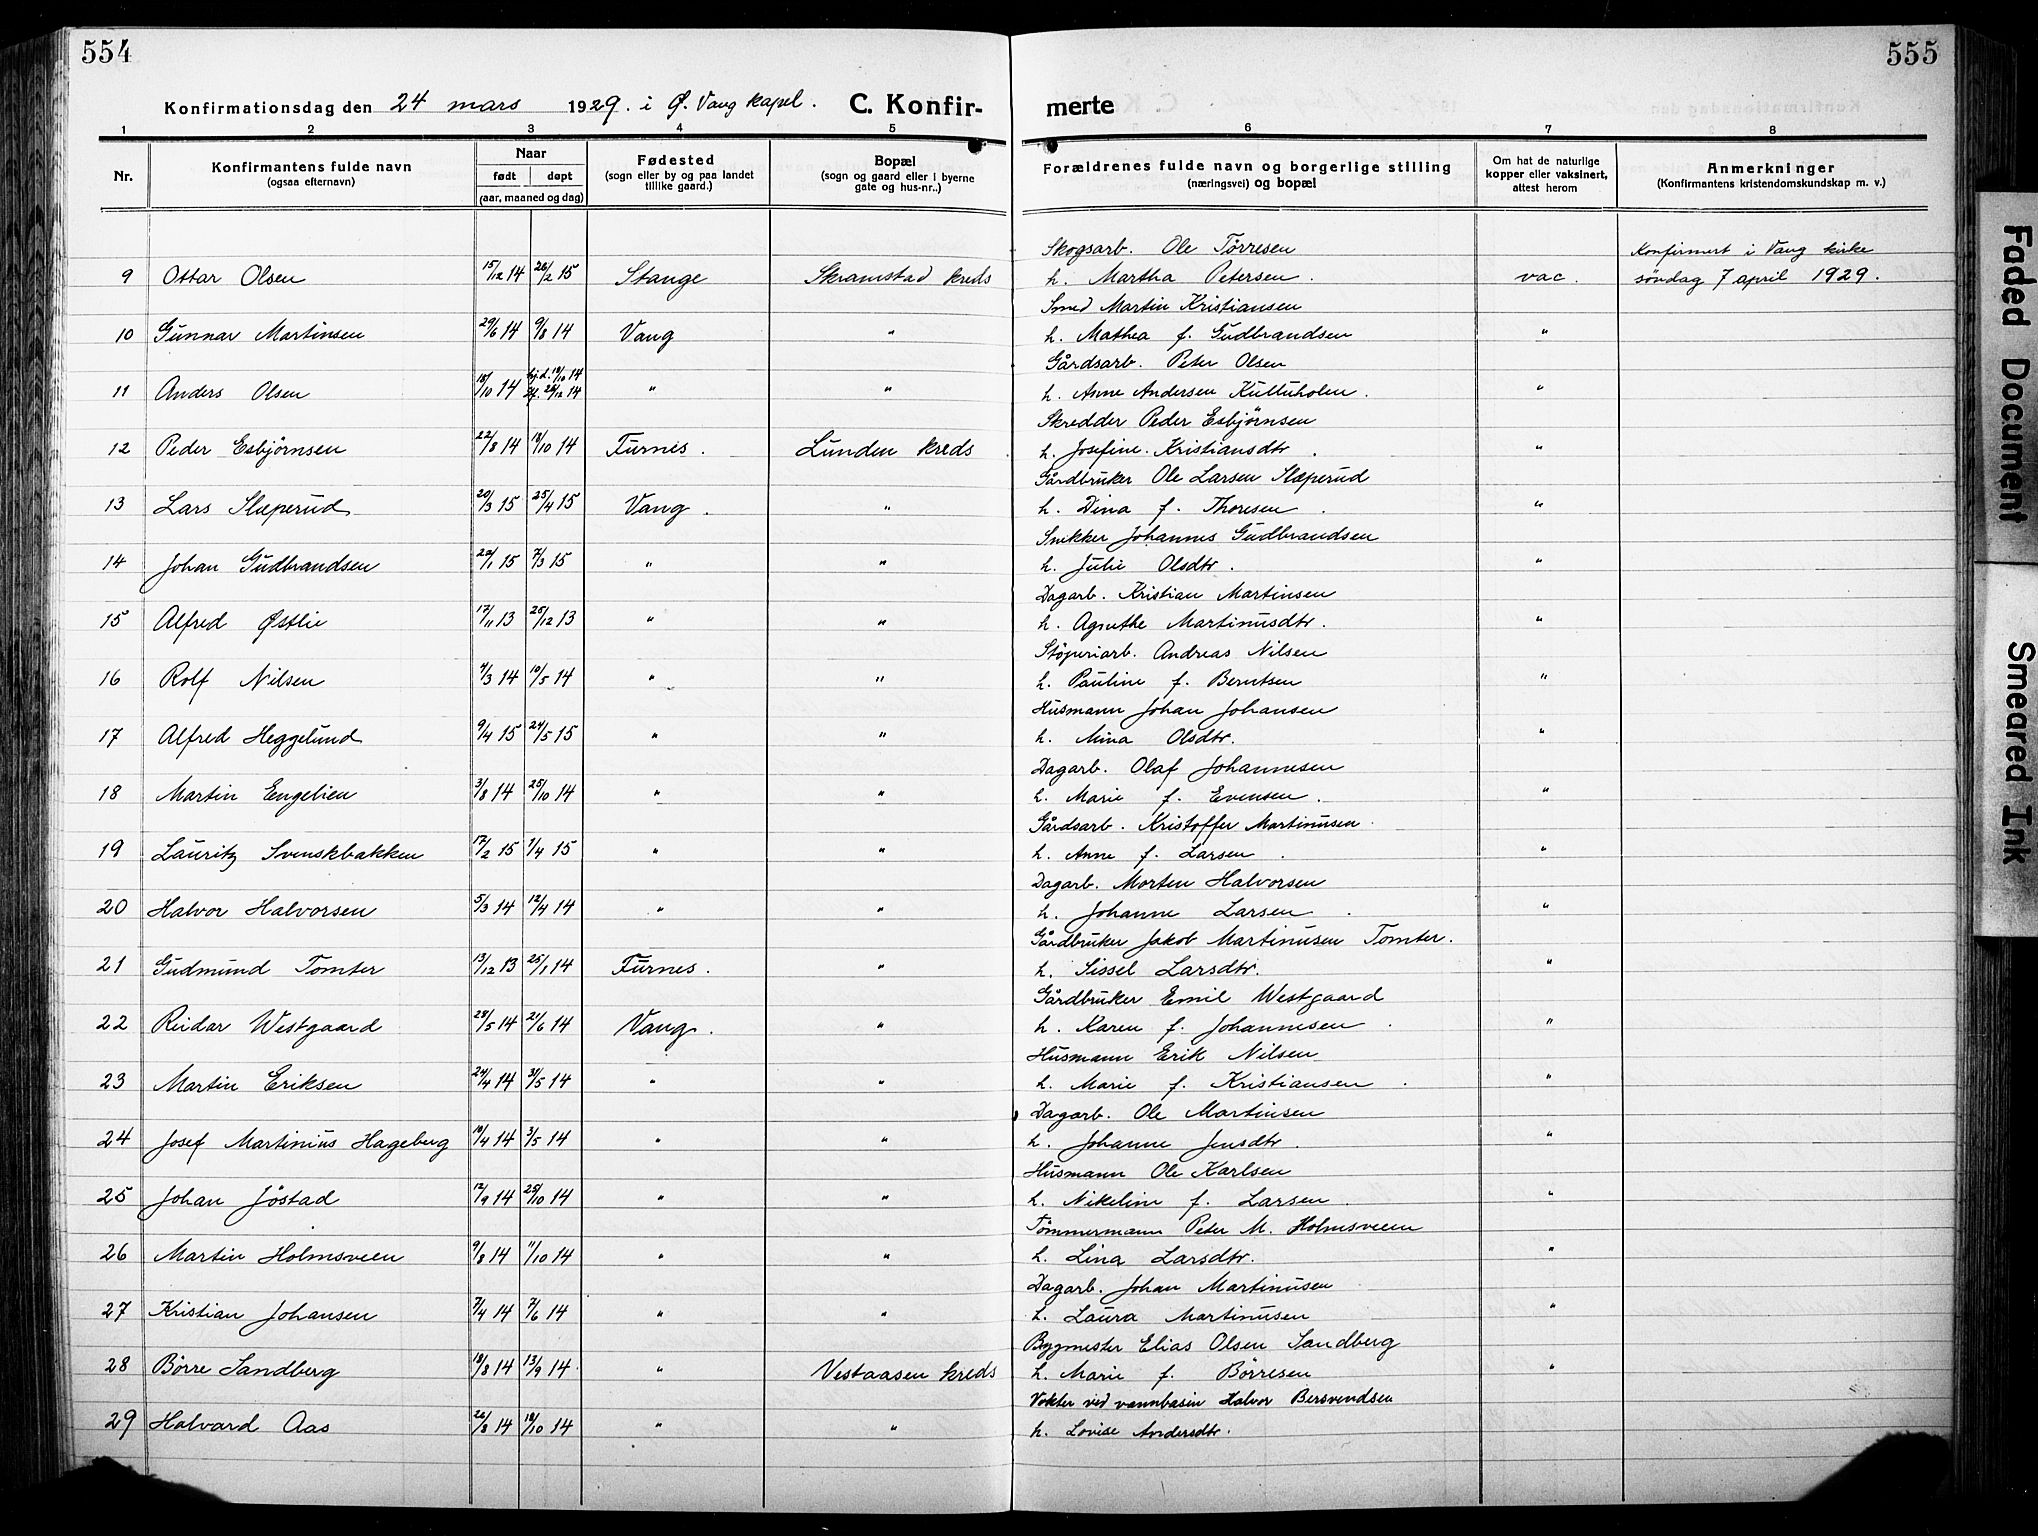 554
555
Konfirmationsdag den 24 mars 1929. i Ø. Vang kapel. C. Konfir- merte
1 2 3 4 5 6 7 8
Nr. Konfirmantens fulde navn (ogsaa efternavn) Naar født døpt (aar, maaned og dag) Fødested (sogn eller by og paa landet tillike gaard.) Bopæl (sogn og gaard eller i byerne gate og hus-nr..) Forældrenes fulde navn og borgerlige stilling (næringsvei) og bopæl Om hat de naturlige kopper eller vaksinert, attest herom Anmerkninger (Konfirmantens kristendomskundskap m. v.)
Skogsarb. Ole Tørresen Konfirmert i Vang kirke
9 Ottar Olsen 15/12 14 26/2 15 Stange Skramstad kreds h. Martha Petersen. vac. søndag 7 april 1929.
Smed Martin Kristiansen
10 Gunnar Martinsen 29/6 14 9/8 14 Vang " h. Mathea f. Gudbrandsen "
Gårdsarb. Peter Olsen
11 Anders Olsen 18/10 14 hj.d. 18/10 14 26/12 14 " " h. Anne Andersen Kultuholen. "
Skredder Peder Esbjørnsen
12 Peder Esbjørnsen 22/8 14 18/10 14 Furnes. Lunden kreds h. Josefine Kristiansdtr. "
Gårdbruker Ole Larsen Slæperud
13 Lars Slæperud 20/3 15 25/4 15 Vang. " h. Dina f. Thoresen. "
Snekker Johannes Gudbrandsen
14 Johan Gudbrandsen 20/1 15 7/3 15 " " h. Julie Olsdtr. "
Dagarb. Kristian Martinsen
15 Alfred Østlie 17/11 13 25/12 13 " " h. Agnethe Martinusdtr. "
Støperiarb. Andreas Nilsen
16 Rolf Nilsen 4/3 14 10/5 14 " " h. Pauline f. Berntsen "
Husmann Johan Johansen
17 Alfred Heggelund 9/4 15 24/5 15 " " h. Mina Olsdtr. "
Dagarb. Olaf Johannesen
18 Martin Engelien 3/8 14 25/10 14 " " h. Marie f. Evensen. "
Gårdsarb. Kristoffer Martinusen.
19 Lauritz Svenskbakken 17/2 15 /4 15 " " h. Anne f. Larsen. "
Dagarb. Morten Halvorsen
20 Halvor Halvorsen 5/3 14 12/4 14 " " h. Johanne Larsen. "
Gårdbruker Jakob Martinusen Tomter.
21 Gudmund Tomter 13/12 13 25/1 14 Furnes. " h. Sissel Larsdtr. "
Gårdbruker Emil Westgaard
22 Reidar Westgaard 28/5 14 21/6 14 Vang. " h. Karen f. Johannesen. "
Husmann Erik Nilsen
23 Martin Eriksen 24/4 14 31/5 14 " " h. Marie f. Kristiansen. "
Dagarb. Ole Martinsen
24 Josef Martinius Hageberg 10/4 14 3/5 14 " " h. Johanne Jensdtr. "
Husmann Ole Karlsen
25 Johan Jøstad 12/9 14 25/10 14 " " h. Nikeline f. Larsen. "
Tømmermann Peter M. Holmsveen
26 Martin Holmsveen 9/8 14 11/10 14 " " h. Lina Larsdtr. "
Dagarb. Johan Martinusen
27 Kristian Johansen 7/4 14 7/6 14 " " h. Laura Martinusen "
Bygmester Elias Olsen Sandberg
28 Børre Sandberg 18/8 14 13/9 14. " Vestaasen kreds h. Marie f. Børresen "
Vokter ved vannbasin Halvor Bersvendsen
29 Halvard Aas 26/8 14 18/10 14 " " h. Lovise Andersdtr.
Faded Document
Smeared Ink